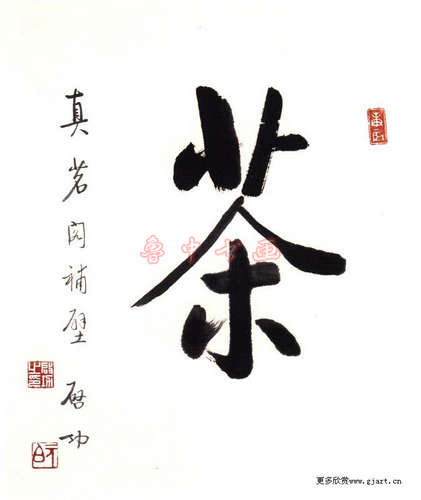 茶
真茗閣補壁 啓功
魯中书画
更多欣赏www.gjart.cn